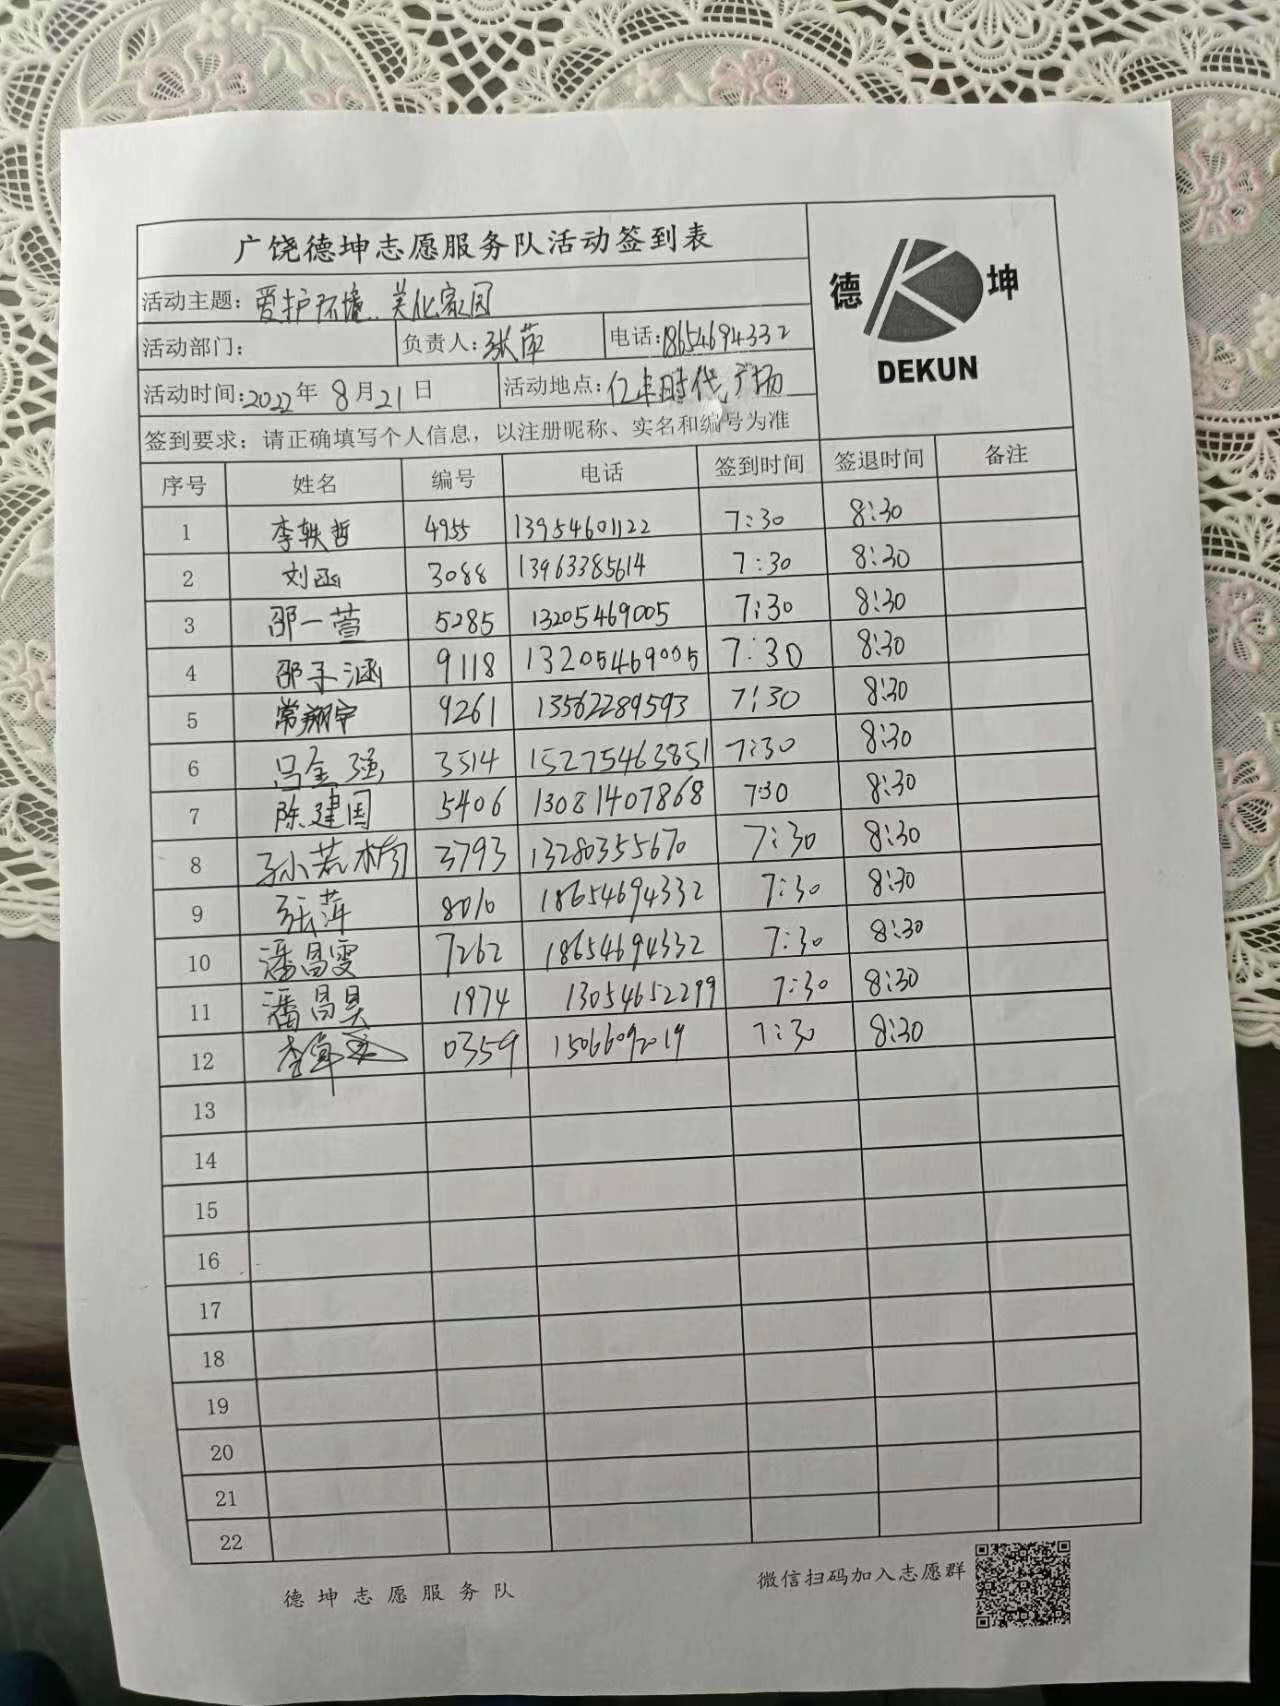 广饶德坤志愿服务队活动签到表
德 坤
DEKUN
活动主题：爱护环境、美化家园
活动部门： 负责人：张萍 电话：18654694332
活动时间：2022年8月21日 活动地点：亿丰时代广场
签到要求：请正确填写个人信息，以注册昵称、实名和编号为准
序号 姓名 编号 电话 签到时间 签退时间 备注
1 李轶哲 4955 13954601122 7:30 8:30
2 刘函 3088 13963385614 7:30 8:30
3 邵一萱 5285 13205469005 7:30 8:30
4 邵子涵 9118 13205469005 7:30 8:30
5 常翔宇 9261 13562289593 7:30 8:30
6 吕金强 3514 15275463851 7:30 8:30
7 陈建国 5406 13081407868 7:30 8:30
8 3793 13280355670 7:30 8:30
9 张萍 8010 18654694332 7:30 8:30
10 潘昌雯 7262 18654694332 7:30 8:30
11 潘昌昊 1974 13054652299 7:30 8:30
12 0359 15066092019 7:30 8:30
13
14
15
16
17
18
19
20
21
22
德坤志愿服务队 微信扫码加入志愿群